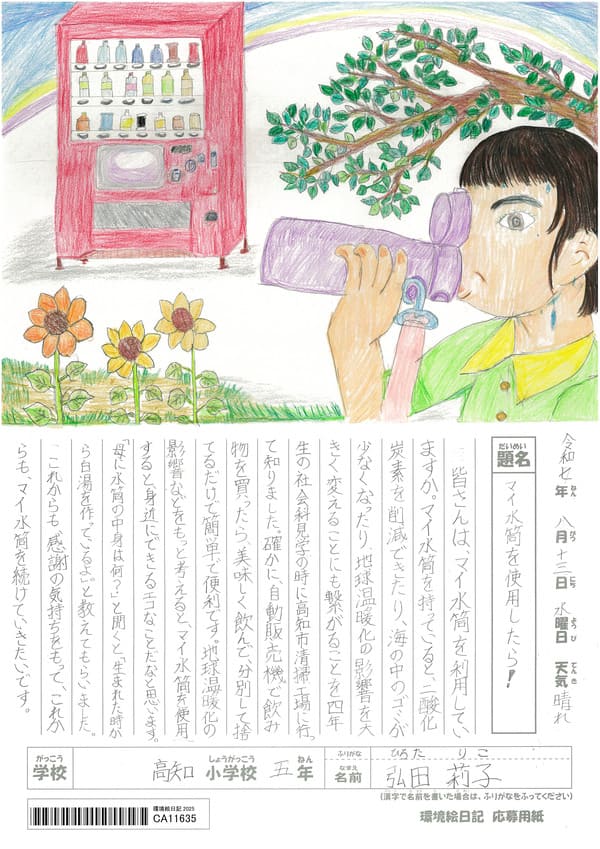 令和七年 八月十三日 水曜日 天気 晴れ
ねん がつ にち ようび てんき
だいめい
題名 マイ水筒を使用したら!
皆さんは、マイ水筒を利用してい
ますか。マイ水筒を持っていると、二酸化
炭素を削減できたり、海の中のゴミが
少なくなったり、地球温暖化の影響を大
きく変えることにも繋がることを四年
生の社会科見学の時に高知市清掃工場に行っ
て知りました。確かに、自動販売機で飲み
物を買ったら、美味しく飲んで、分別して捨
てるだけで簡単で便利です。地球温暖化の
影響などをもっと考えると、マイ水筒を使用
すると身近にできるエコなことだなと思います。
「母に水筒の中身は何?」と聞くと「生まれた時か
ら白湯を作っているよ」と教えてもらいました。
これからも感謝の気持ちをもって、これか
らも、マイ水筒を続けていきたいです。
がっこう しょうがっこう ねん ふりがな ひろた りこ
学校 高知 小学校 五年 なまえ 名前 弘田 莉子
(漢字で名前を書いた場合は、ふりがなをふってください)
環境絵日記 2025
CA11635
環境絵日記 応募用紙